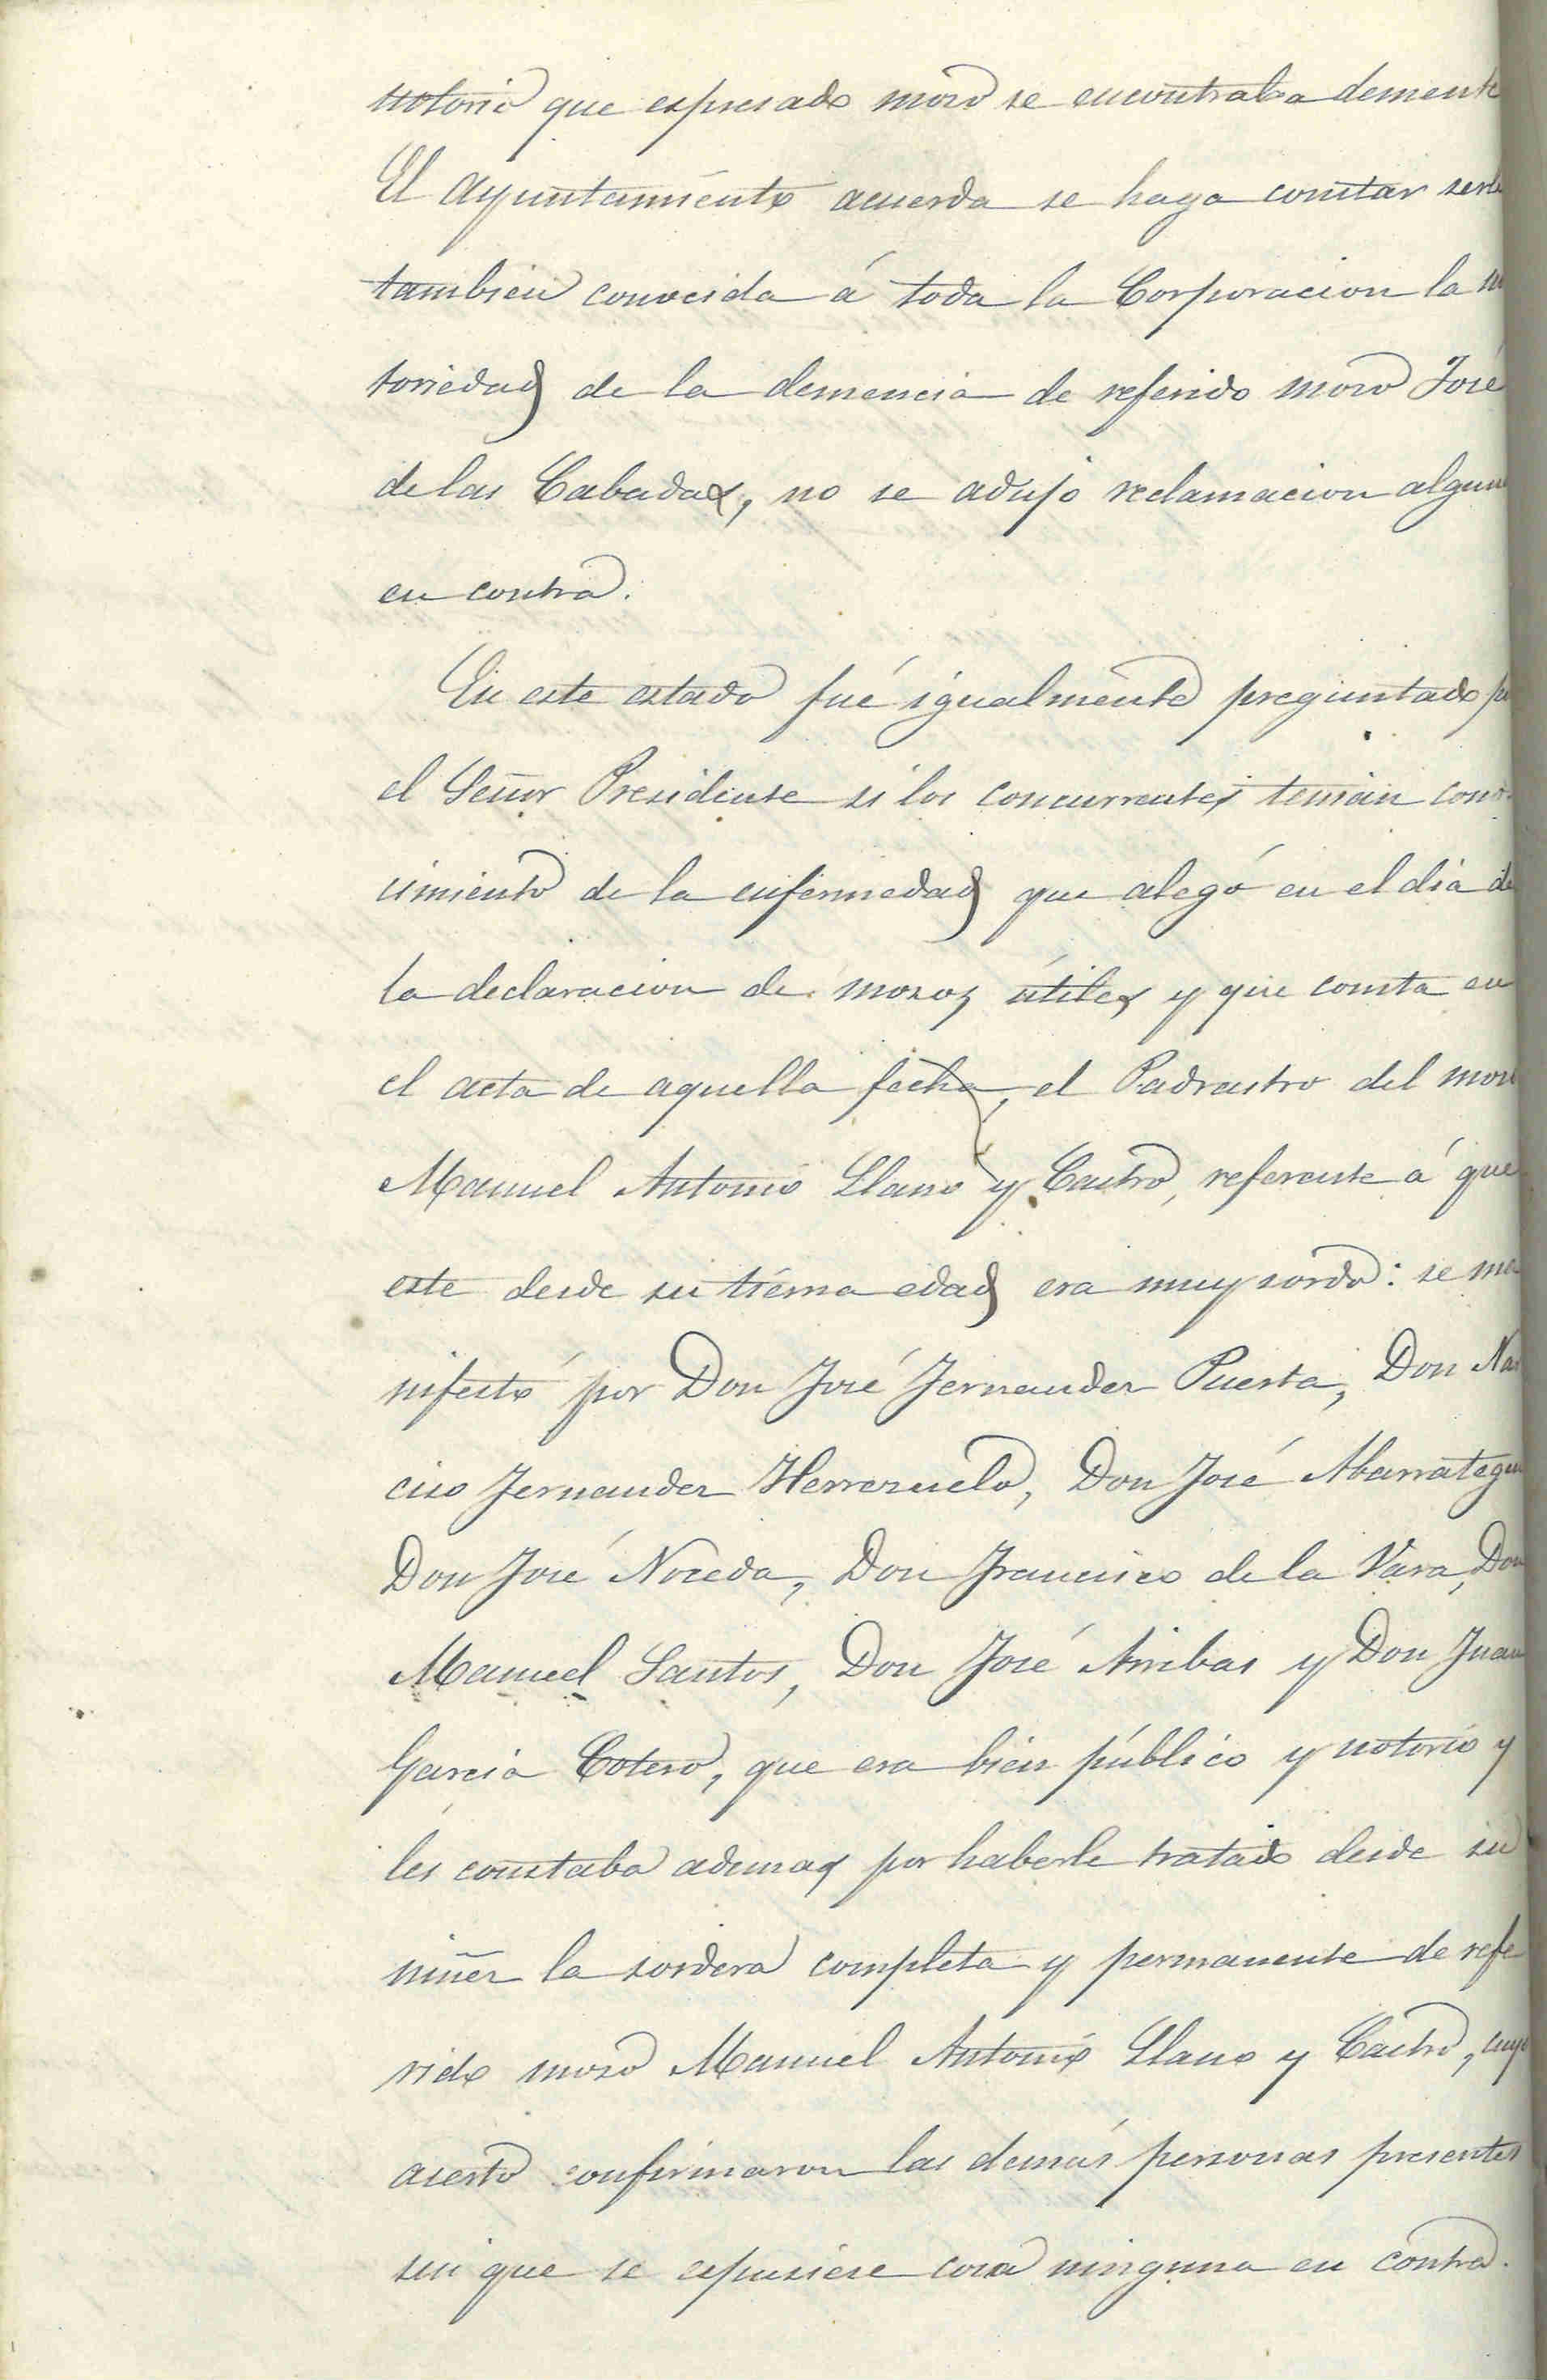 notorio que espresado mozo se encontraba demente
El Ayuntamiento acuerda se haga constar serle
tambien conocida á toda la Corporacion la no
toriedad de la demencia de referido mozo José
de las Cabadas, no se adujo reclamacion alguna
en contra.
En este estado fué igualmente preguntado por
el Señor Presidente si los concurrentes tenian cono-
cimiento de la enfermedad que alegó en el dia de
la declaracion de mozos útiles y que consta en
el acta de aquella fecha, el Padrastro del mozo
Manuel Antonio Llano y Castro, referente á que
este desde su tierna edad era muy sordo: se ma
nifestó por Don José Fernandez Puesta, Don Nar
ciso Fernandez Herrezuelo, Don José Abarrategui
Don José Noceda, Don Francisco de la Vara, Don
Manuel Santos, Don José Arribas y Don Juan
Garcia Cotero, que era bien público y notorio y
les constaba ademas por haberle tratado desde su
niñez la sordera completa y permanente de refe
rido mozo Manuel Antonio Llano y Castro, cuyo
aserto confirmaron las demás personas presentes
sin que se espusiese cosa ninguna en contra.